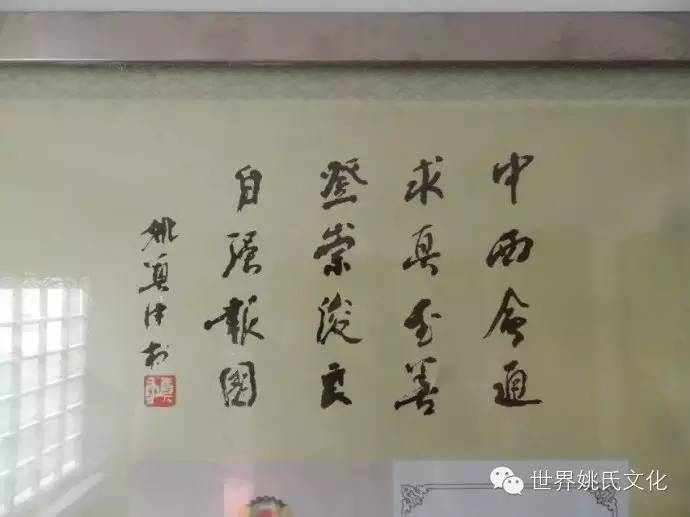 中西会通
求真至善
登崇俊良
自强报国
姚
世界姚氏文化